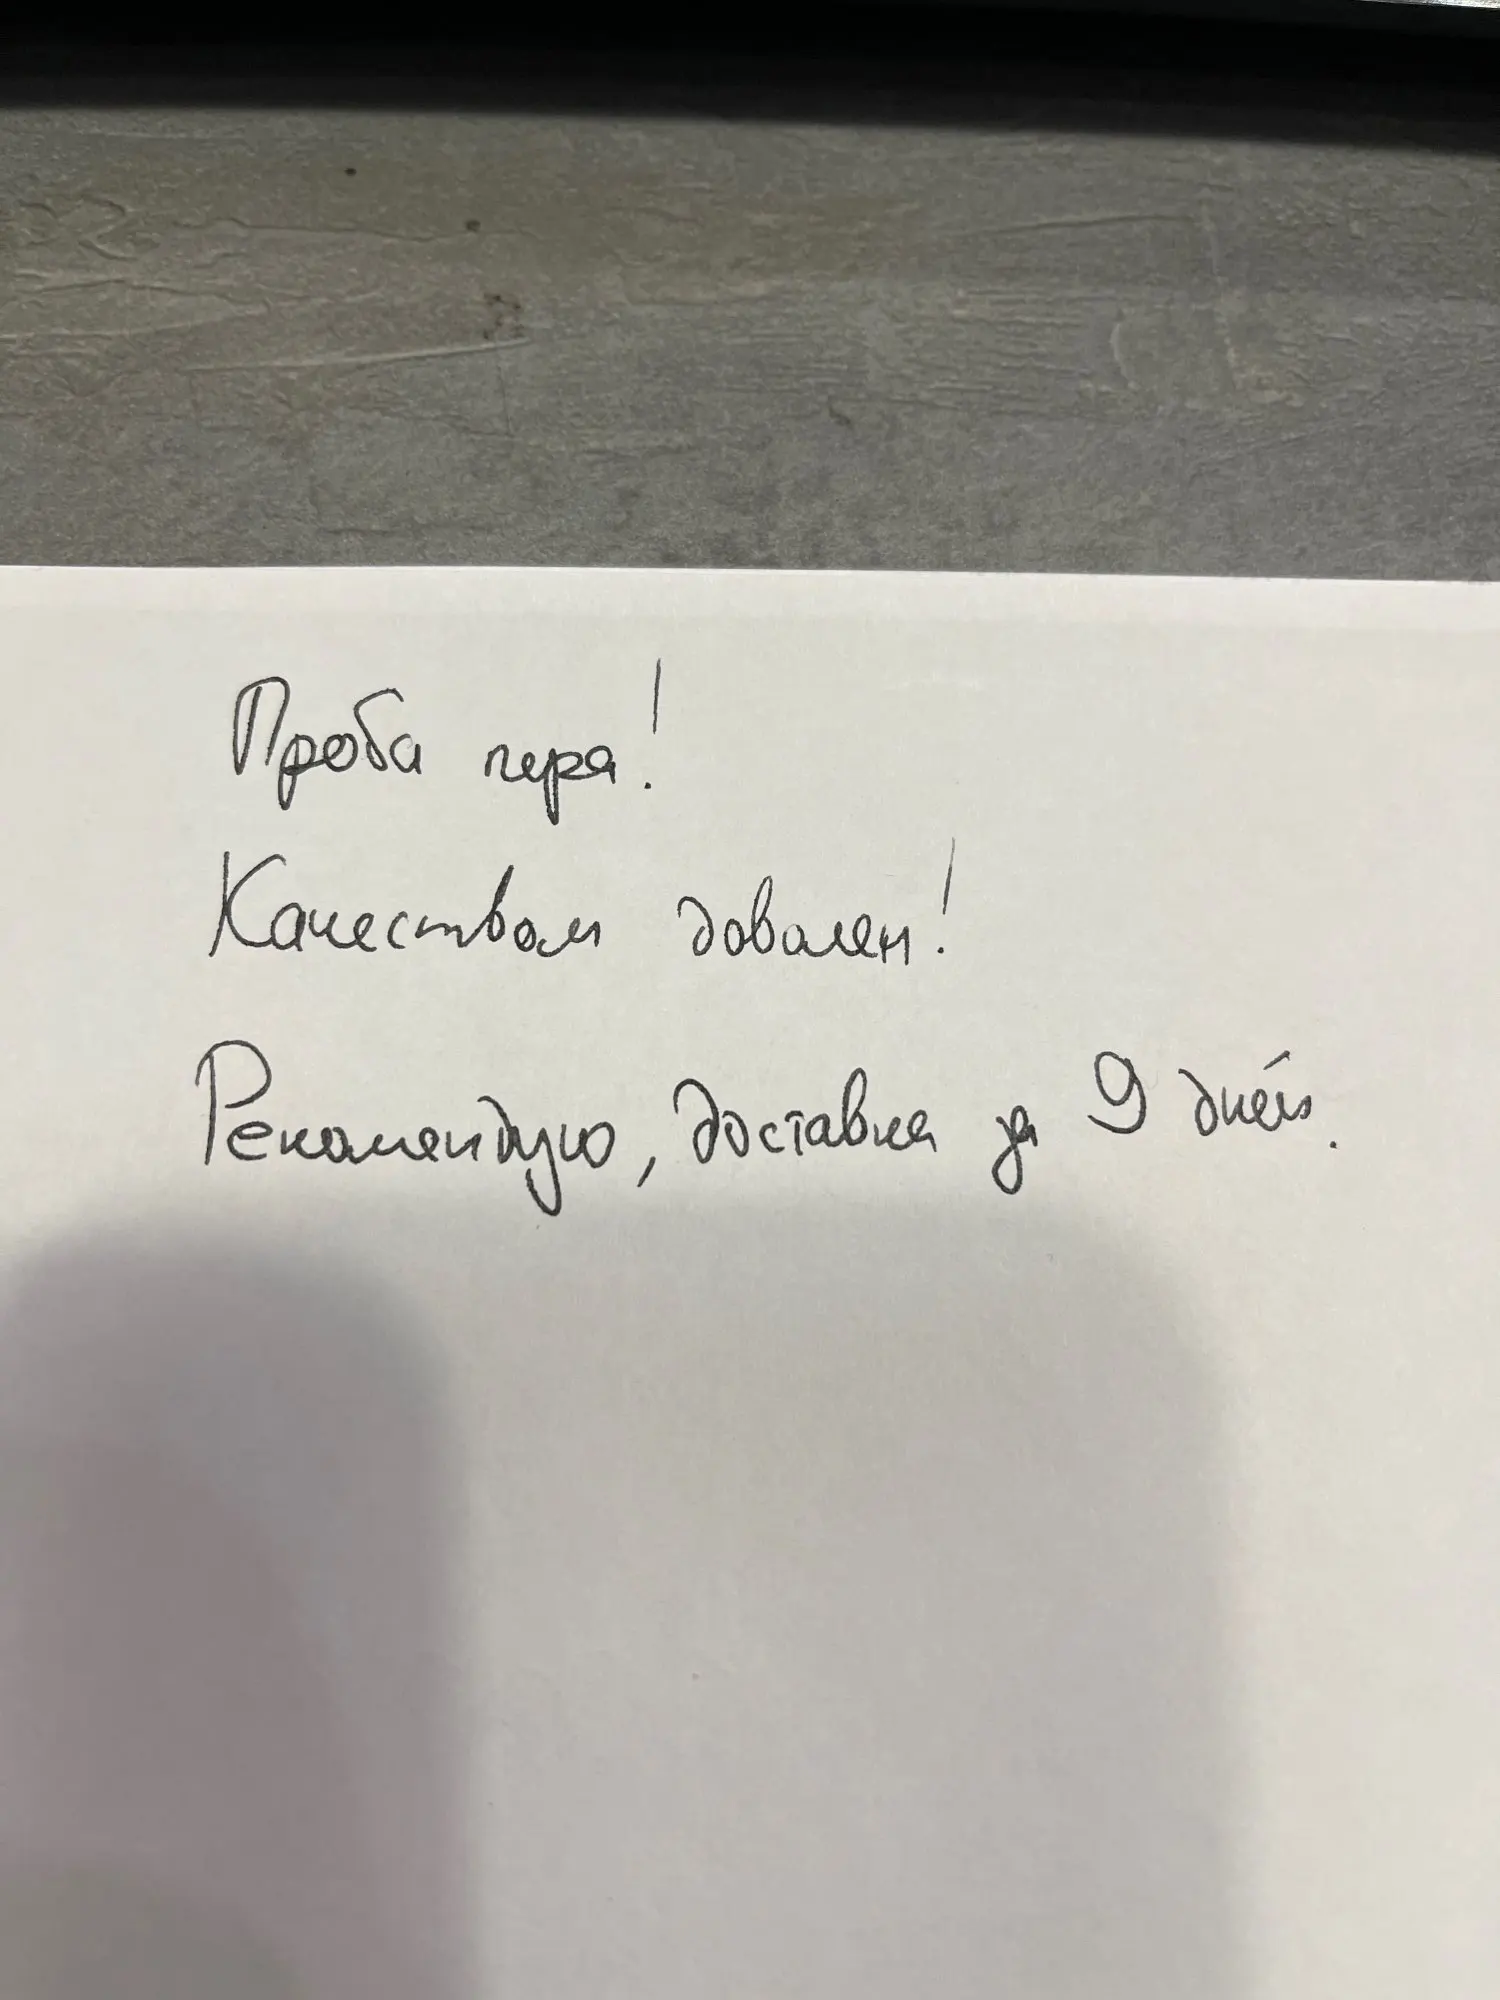 Проба пера!
Качеством доволен!
Рекомендую, доставка за 9 дней.